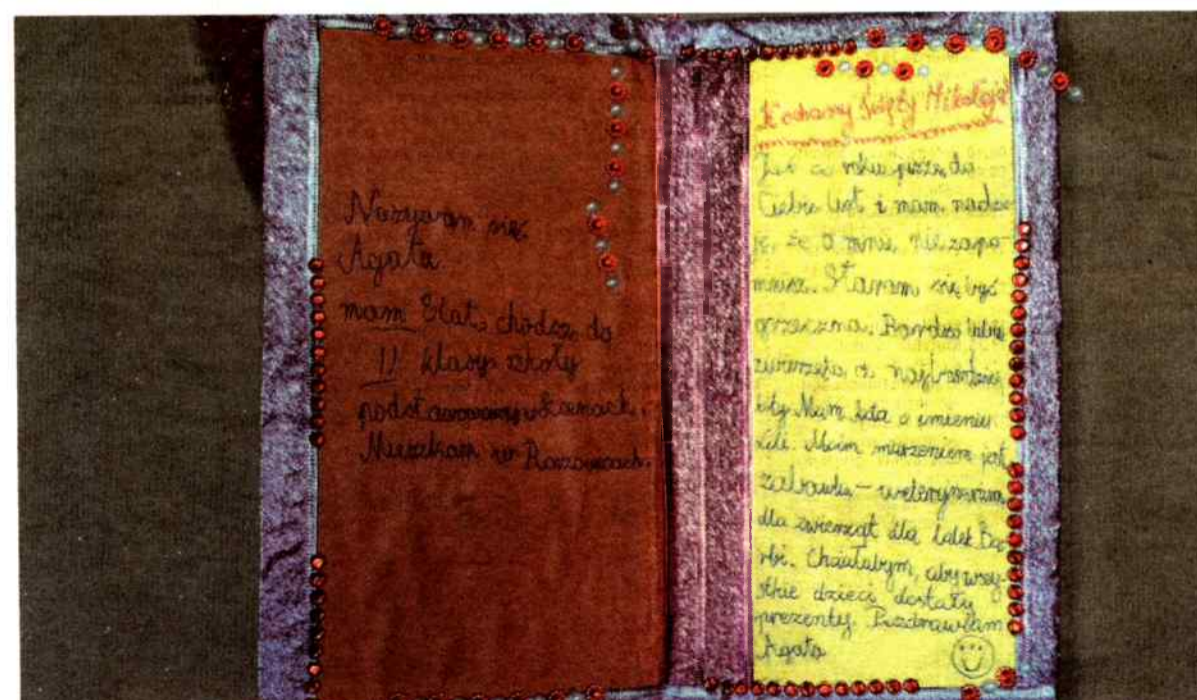 Nazywam się
Agata
mam 8 lat, chodzę do
II klasy szkoły
podstawowej w
Mieszkam w
Kochany Święty Mikołaju!
Jak co roku piszę do
Ciebie list i mam nadzie-
ję, że o mnie nie zapo-
mnisz. Staram się być
grzeczna. Bardzo lubię
zwierzęta a najbardziej
koty. Mam kota o imieniu
Moim marzeniem jest
zabawka - weterynarz
dla zwierząt dla lalek Ba-
rbi. Chciałabym, aby wszy-
stkie dzieci dostały
prezenty. Pozdrawiam
Agata